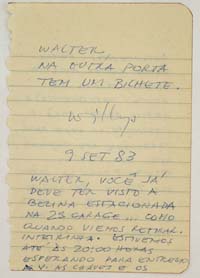 WALTER,
NA OUTRA PORTA
TEM UM BILHETE.
Willys
9 SET 83
WALTER, VOCÊ JÁ
DEVE TER VISTO A
BERLINA ESTACIONADA
NA 2ª GARAGE... COMO
QUANDO VIEMOS RETIRAR.
INTEIRINHA. ESTIVEMOS
ATÉ ÀS 20:00 HORAS
ESPERANDO PARA ENTREGAR
A V. AS CHAVES E OS